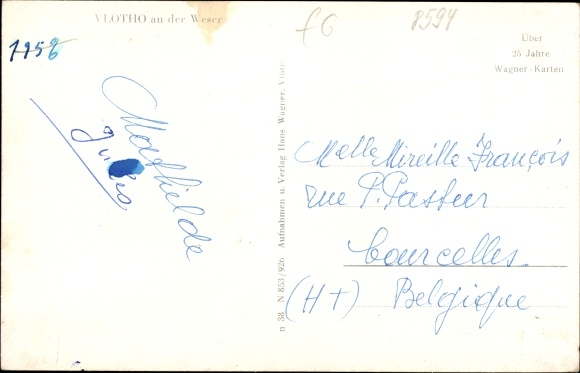 VLOTHO an der Weser
f6
8594
1958
Über
25 Jahre
Wagner-Karten
Mathilde
Jules
n 38 N 853/926 Aufnahmen u. Verlag Hans Wagner, Vlotho
Melle Mireille François
rue P. Pasteur
Courcelles.
(HT) Belgique